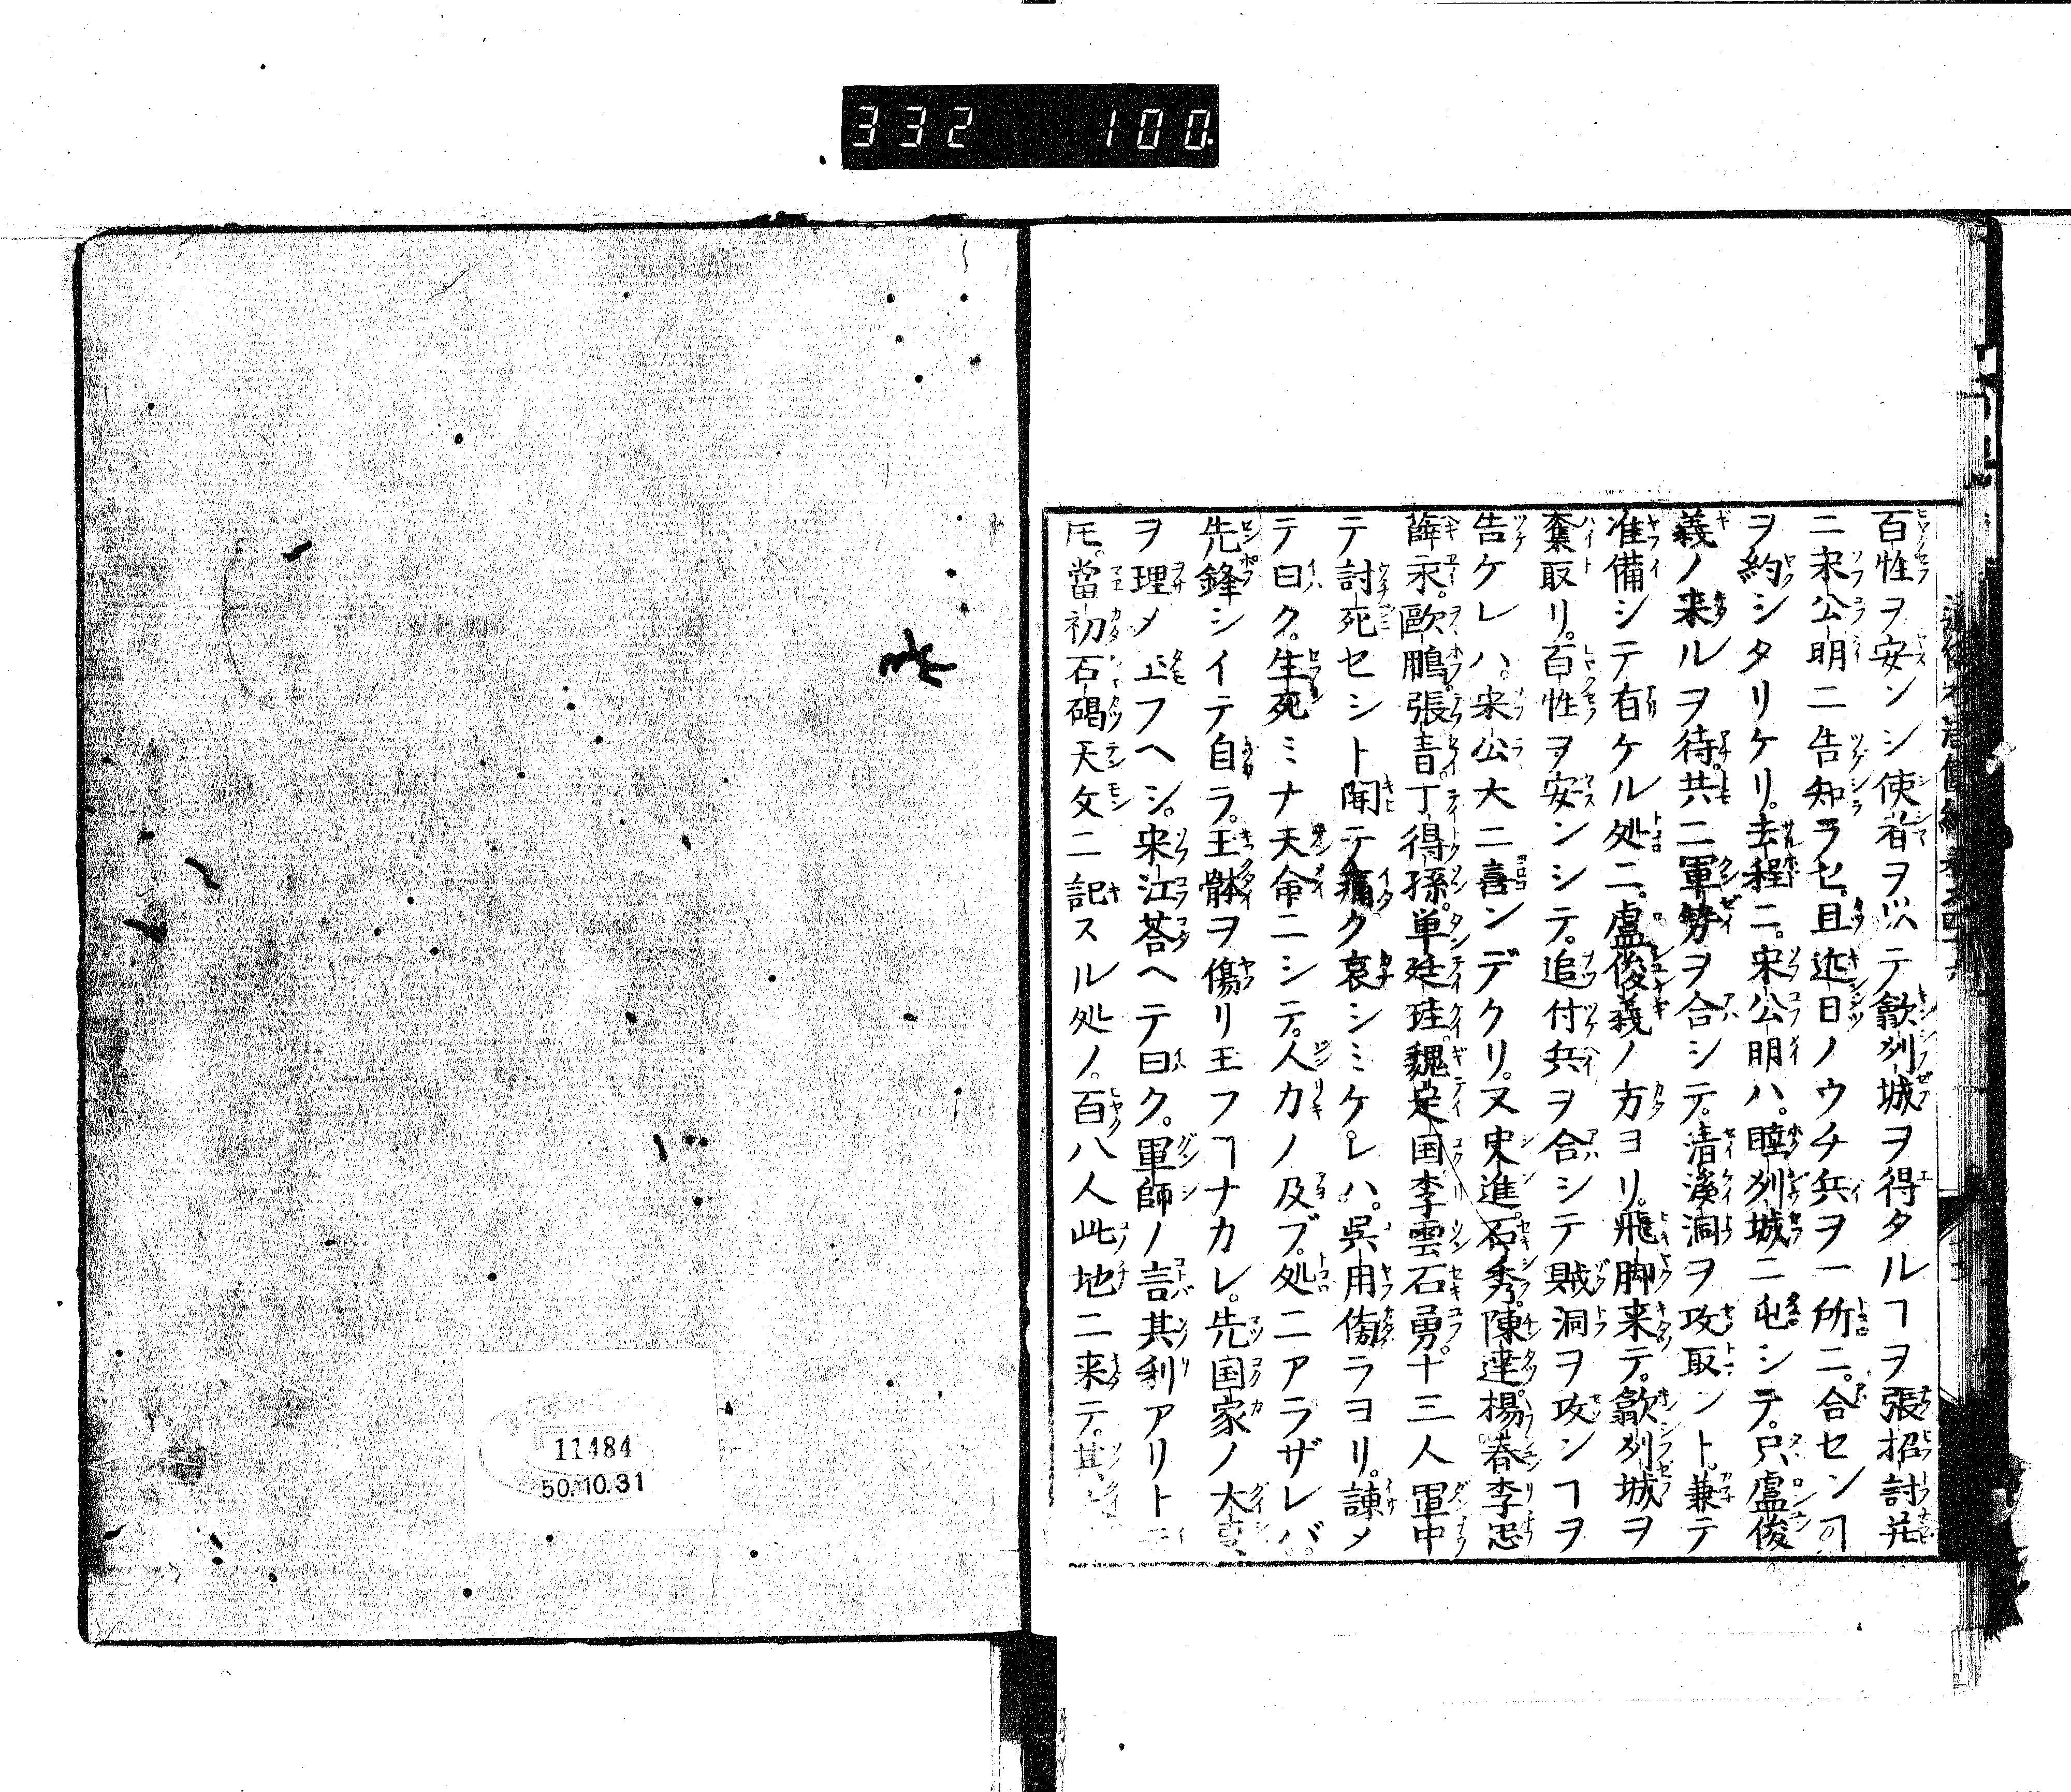 332 100
百性ヲ安ンシ使者ヲ以テ歙刕城ヲ得タルヿヲ張招討並
ニ宋公明ニ告知ラセ且近日ノウチ兵ヲ一所ニ合センヿ
ヲ約シタリケリ去程ニ宋公明ハ睦刕城ニ屯シテ只盧俊
義ノ来ルヲ待共ニ軍勢ヲ合シテ清溪洞ヲ攻取ント兼テ
准備シテ有ケル処ニ盧俊義ノ方ヨリ飛脚来テ歙刕城ヲ
奪取リ百性ヲ安ンシテ追付兵ヲ合シテ賊洞ヲ攻ンヿヲ
告ケレハ宋公大ニ喜ンデクリ又史進石秀陳達楊春李忠
薛永歐鵬張青丁得孫単廷珪魏定国李雲石勇十三人軍中
テ討死セシト聞テ痛ク哀シミケレハ呉用傍ラヨリ諫メ
テ曰ク生死ミナ天命ニシテ人力ノ及ブ処ニアラザレバ
先鋒シイテ自ラ王体ヲ傷リ玉フヿナカレ先国家ノ大
ヲ理メ玉フヘシ宋江荅ヘテ曰ク軍師ノ言其利アリト
𪜈當初石碣天文ニ記スル処ノ百八人此地ニ来テ其
11484
50.10.31